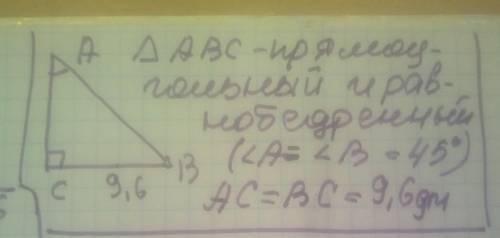 A
△ABC - прямоу-
гольный и рав-
нобедренный
(∠A = ∠B = 45°)
AC = BC = 9,6 дм
C 9,6 B